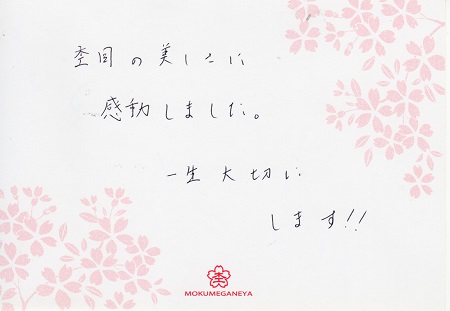 杢目の美しさに
感動しました。
一生大切に
します!!
杢
MOKUMEGANEYA